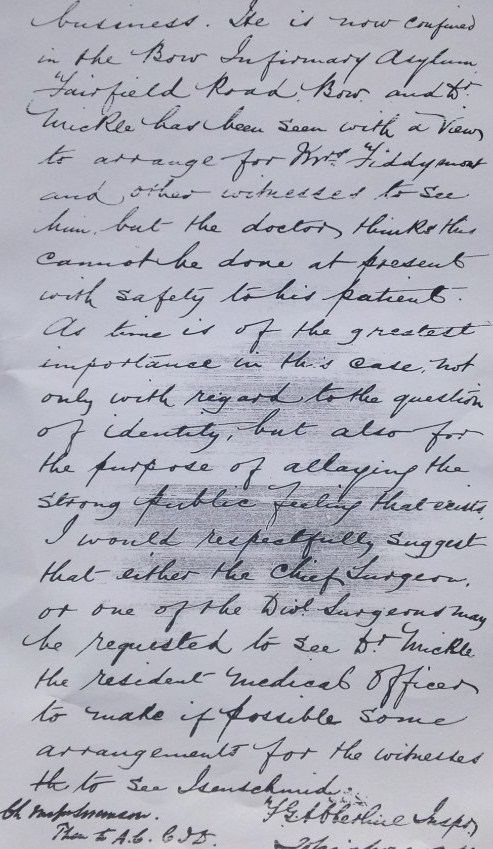 business. He is now confined
in the Bow Infirmary Asylum
Fairfield Road. Bow. and Dr
Mickle has been seen with a view
to arrange for Mrs Fiddymont
and other witnesses to see
him. but the doctor thinks this
cannot be done at present
with safety to his patient.
As time is of the greatest
importance in this case, not
only with regard to the question
of identity, but also for
the purpose of allaying the
strong public feeling that exists,
I would respectfully suggest
that either the Chief Surgeon,
or one of the Divl. Surgeons may
be requested to see Dr Mickle
the resident Medical Officer
to make if possible some
arrangements for the witnesses
th to see Isenschmid.
F G Abberline Inspr
Ch Inspr Swanson.
Then to A.C. C.I.D.